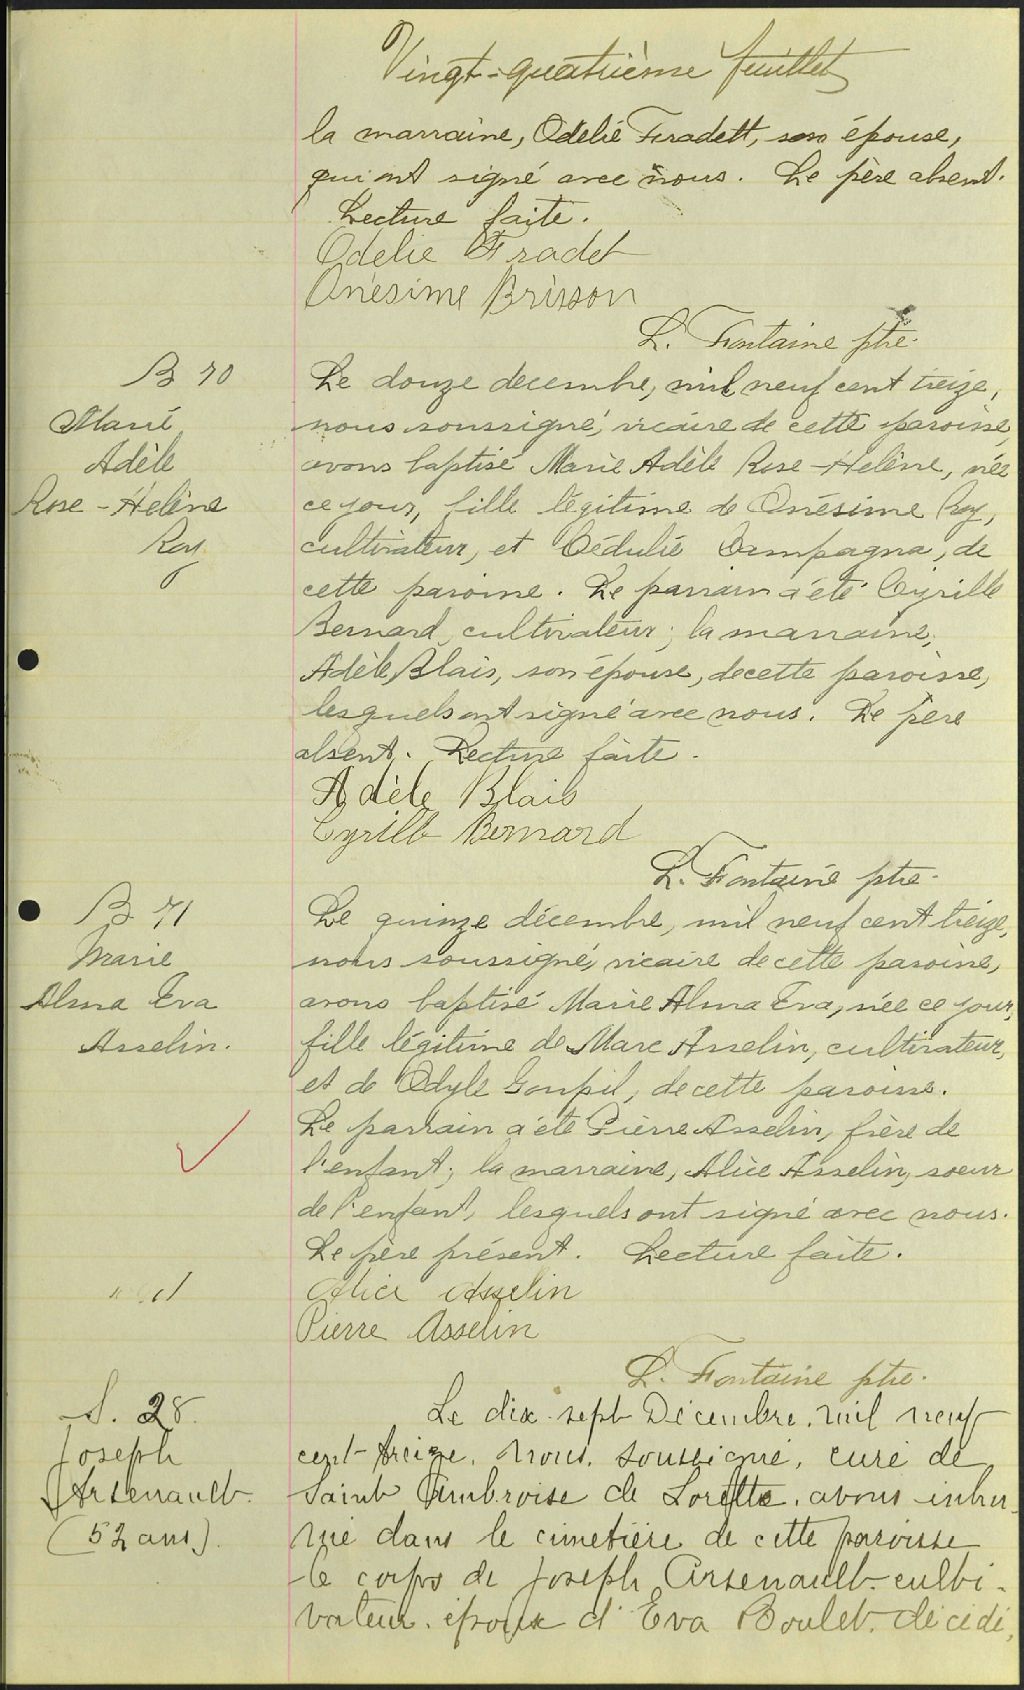 Vingt-quatrième feuillet
la marraine, Odelie Fradett, son épouse,
qui ont signé avec nous. Le père absent.
Lecture faite.
Odelie Fradet
Onésime Brisson
L. Fontaine ptre.
B 70
Marie
Adèle
Rose-Hélène
Roy
Le douze decembre, mil neuf cent treize,
nous soussigné, vicaire de cette paroisse,
avons baptisé Marie Adèle Rose-Hélène, née
ce jour, fille légitime de Onésime Roy,
cultivateur, et Cédulie Campagna, de
cette paroisse. Le parrain a été Cyrille
Bernard, cultivateur; la marraine,
Adèle Blais, son épouse, de cette paroisse,
lesquels ont signé avec nous. Le père
absent. Lecture faite.
Adèle Blais
Cyrille Bernard
L. Fontaine ptre.
B 71
Marie
Alma Eva
Asselin.
Le quinze décembre, mil neuf cent treize,
nous soussigné, vicaire de cette paroisse,
avons baptisé Marie Alma Eva, née ce jour,
fille légitime de Marc Asselin, cultivateur,
et de Odyle Goupil, de cette paroisse.
Le parrain a été Pierre Asselin, frère de
l'enfant; la marraine, Alice Asselin, soeur
de l'enfant, lesquels ont signé avec nous.
Le père présent. Lecture faite.
Alice Asselin
Pierre Asselin
L. Fontaine ptre.
S. 28.
Joseph
Arsenault.
(52 ans).
Le dix-sept Décembre, mil neuf
cent-treize, nous, soussigné, curé de
Saint Ambroise de Lorette, avons inhu-
mé dans le cimetière de cette paroisse
le corps de Joseph Arsenault culti-
vateur, époux d'Eva Boulet, décédé,